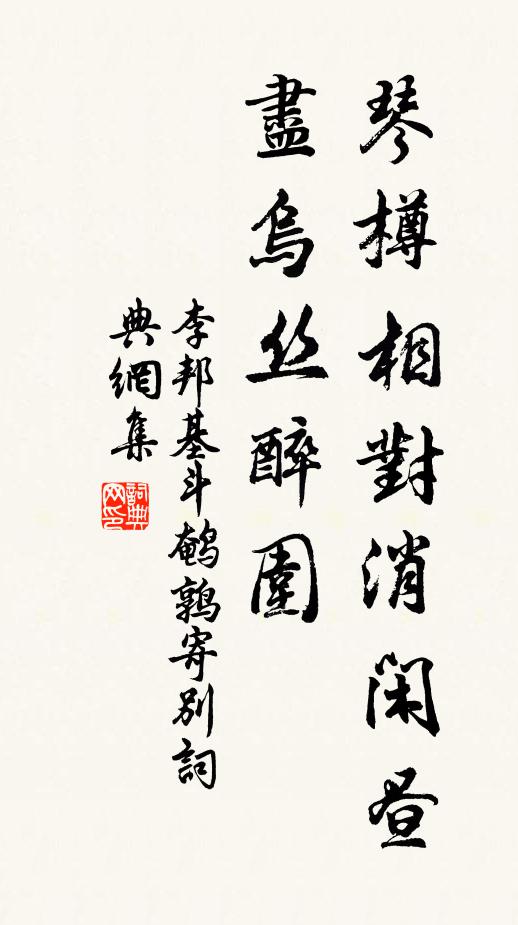 琴樽相對消閑昼
盡烏丝醉圍
李邦基斗鵪鶉寄别詞
典網集
詞典网印